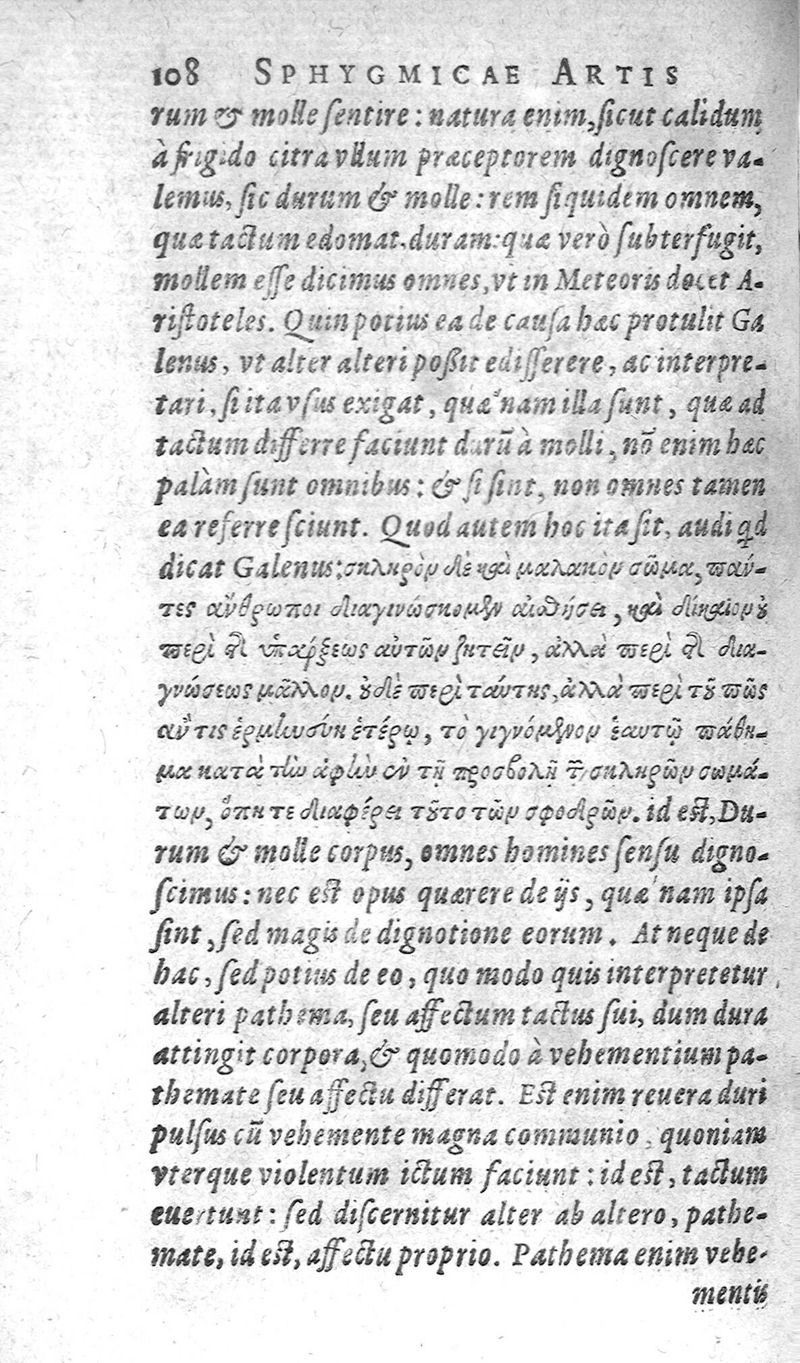 108 SPHYGMICAE ARTIS
rum & molle ſentire: natura enim, ſicut calidum
à frigido citra vllum præceptorem dignoſcere va-
lemus, ſic durum & molle: rem ſiquidem omnem,
quæ tactum edomat, duram: quæ verò ſubterfugit,
mollem eſſe dicimus omnes, vt in Meteoris docet A-
riſtoteles. Quin potius ea de cauſa hæc protulit Ga
lenus, vt alter alteri poßit ediſſerere, ac interpre-
tari, ſi ita vſus exigat, quæ nam illa ſunt, quæ ad
tactum differre faciunt durũ à molli, nõ enim hæc
palàm ſunt omnibus: & ſi ſint, non omnes tamen
ea referre ſciunt. Quod autem hoc ita ſit, audi qd
dicat Galenus: σκληρὸν δὲ καὶ μαλακὸν σῶμα, πάν-
τες ἄνθρωποι διαγινώσκομεν αἰσθήσει, καὶ δίκαιον οὐ
περὶ τ͂ ὑπάρξεως αὐτῶν ζητεῖν, ἀλλὰ περὶ τ͂ δια-
γνώσεως μᾶλλον. οὐδὲ περὶ ταύτης, ἀλλὰ περὶ τοῦ πῶς
ἄν τις ἑρμηνεύση ἑτέρῳ, τὸ γιγνόμενον ἑαυτῷ πάθη-
μα κατὰ τὴν ἁφὴν ἐν τῇ προσβολῇ τ͂ σκληρῶν σωμά-
των, ὅπη τε διαφέρει τοῦτο τῶν σφοδρῶν. id eſt, Du-
rum & molle corpus, omnes homines ſenſu digno-
ſcimus: nec eſt opus quærere de ijs, quæ nam ipſa
ſint, ſed magis de dignotione eorum. At neque de
hac, ſed potius de eo, quo modo quis interpretetur
alteri pathema, ſeu affectum tactus ſui, dum dura
attingit corpora, & quomodo à vehementium pa-
themate ſeu affectu differat. Eſt enim reuera duri
pulſus cũ vehemente magna communio, quoniam
vterque violentum ictum faciunt: id eſt, tactum
euertunt: ſed diſcernitur alter ab altero, pathe-
mate, id eſt, affectu proprio. Pathema enim vehe-
mentis